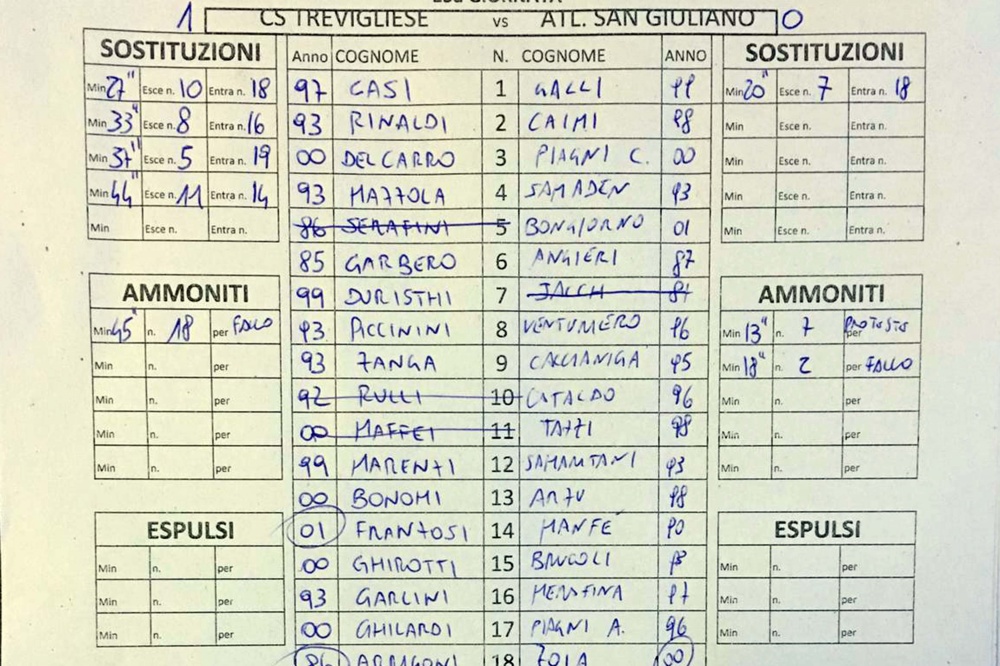 1 CS TREVIGLIESE vs ATL. SAN GIULIANO 0
SOSTITUZIONI Anno COGNOME N. COGNOME ANNO SOSTITUZIONI
Min 27" Esce n. 10 Entra n. 18 97 CASI 1 GALLI 99 Min 20" Esce n. 7 Entra n. 18
Min 33" Esce n. 8 Entra n. 16 93 RINALDI 2 CAIMI 98 Min Esce n. Entra n.
Min 37" Esce n. 5 Entra n. 19 00 DEL CARRO 3 PIAGNI C. 00 Min Esce n. Entra n.
Min 44" Esce n. 11 Entra n. 14 93 MAZZOLA 4 SAMADEN 93 Min Esce n. Entra n.
Min Esce n. Entra n. 86 SERAFINI 5 BONGIORNO 01 Min Esce n. Entra n.
85 GARBERO 6 ANGIERI 87
AMMONITI 99 DURISTHI 7 JACCH AMMONITI
Min 45" n. 18 per FALLO 93 PICCININI 8 VENTUMERO 96 Min 13" n. 7 per PROTESTE
Min n. per 93 ZANGA 9 CACCIANIGA 95 Min 18" n. 2 per FALLO
Min n. per 92 RULLI 10 CATALDO 96 Min n. per
Min n. per 00 MAFFEI 11 TAZZI 98 Min n. per
Min n. per 99 MARENZI 12 SAMANTANI 93 Min n. per
00 BONOMI 13 ARZU 98
ESPULSI 01 FRANZOSI 14 MANFÉ 90 ESPULSI
Min n. per 00 GHIROTTI 15 BRUGOLI Min n. per
Min n. per 93 GARLINI 16 MERAFINA 97 Min n. per
Min n. per 00 GHILARDI 17 PIAGNI A. 96 Min n. per
86 ARRIGONI 18 ZOIA 00